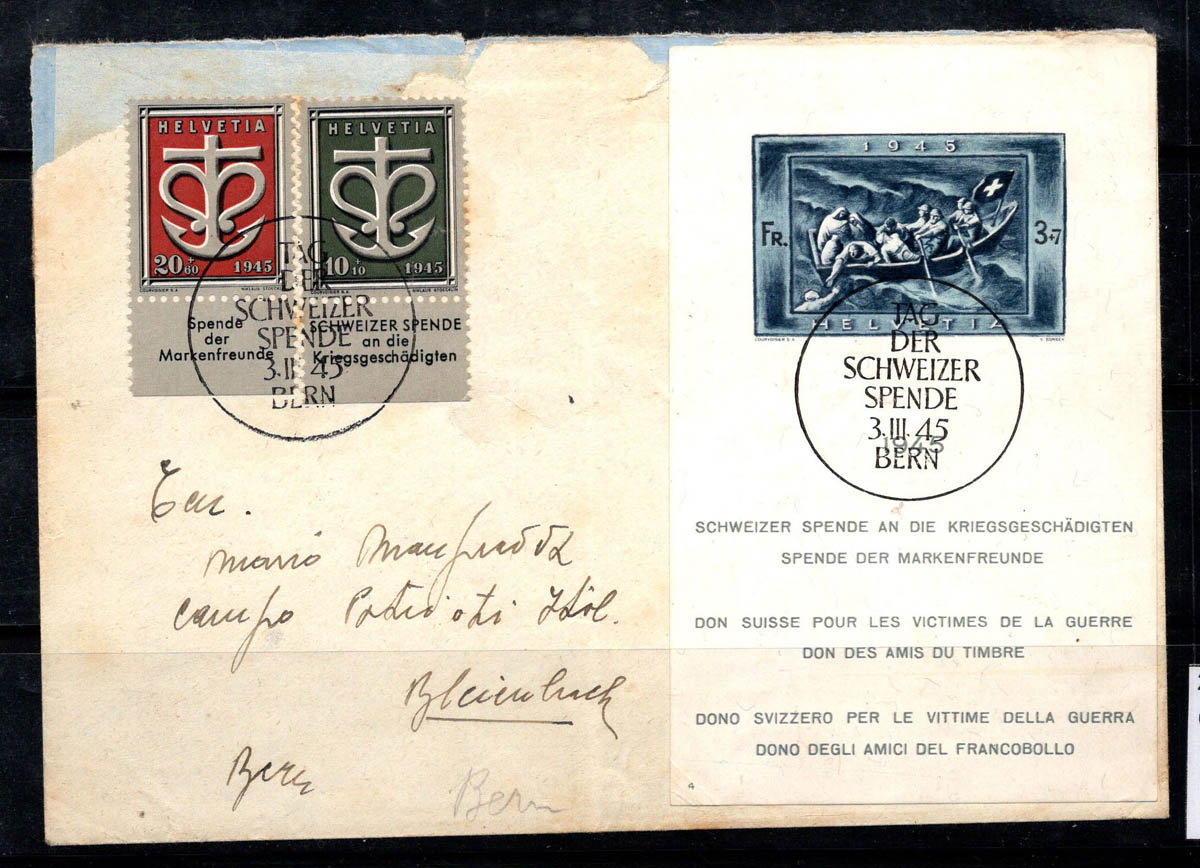 HELVETIA
20+60 1945
COURVOISIER S.A. NIKLAUS STOECKLIN
Spende
der
Markenfreunde
HELVETIA
10+10 1945
COURVOISIER S.A. NIKLAUS STOECKLIN
SCHWEIZER SPENDE
an die
Kriegsgeschädigten
TAG
DER
SCHWEIZER
SPENDE
3.III.45
BERN
1945
FR. 3+7
HELVETIA
COURVOISIER S.A.
TAG
DER
SCHWEIZER
SPENDE
3.III.45
1945
BERN
SCHWEIZER SPENDE AN DIE KRIEGSGESCHÄDIGTEN
SPENDE DER MARKENFREUNDE
DON SUISSE POUR LES VICTIMES DE LA GUERRE
DON DES AMIS DU TIMBRE
DONO SVIZZERO PER LE VITTIME DELLA GUERRA
DONO DEGLI AMICI DEL FRANCOBOLLO
4
Mario
Campo
Bleienbach
Bern
Bern